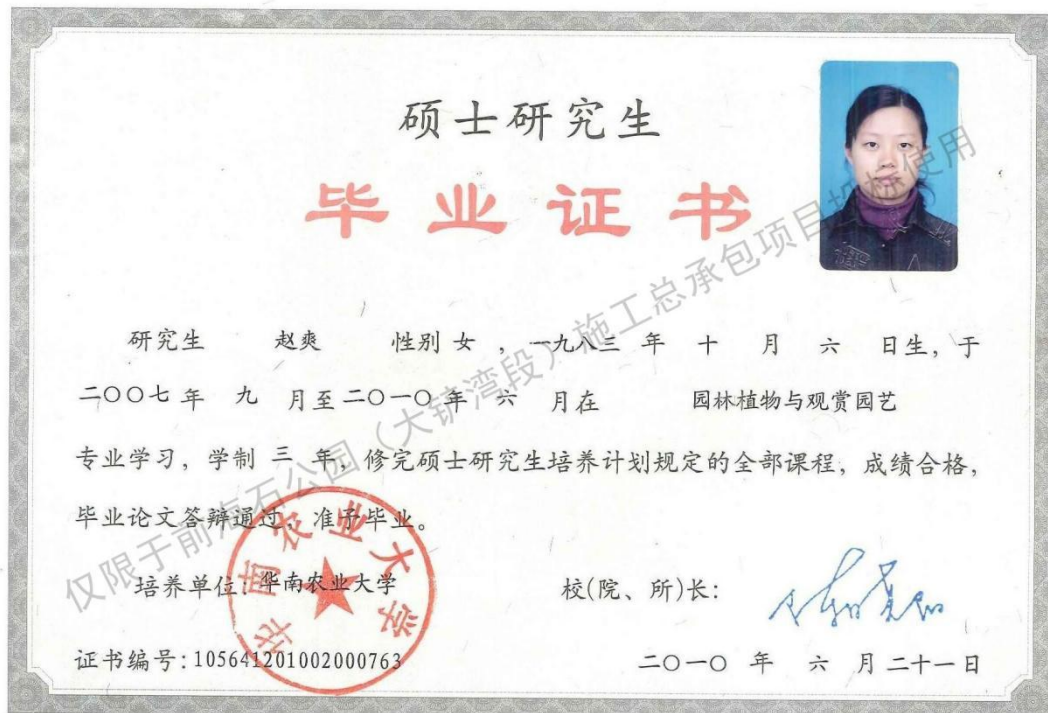 硕士研究生
毕业证书
研究生 赵爽 性别 女 ，一九八三 年 十 月 六 日生，于
二〇〇七 年 九 月至 二〇一〇 年 六 月在 园林植物与观赏园艺
专业学习，学制 三 年，修完硕士研究生培养计划规定的全部课程，成绩合格，
毕业论文答辩通过，准予毕业。
培养单位：华南农业大学
校(院、所)长：
证书编号：105641201002000763
二〇一〇 年 六 月 二十一 日
华南农业大学
仅限于前海石公园（大铲湾段）施工总承包项目投标使用